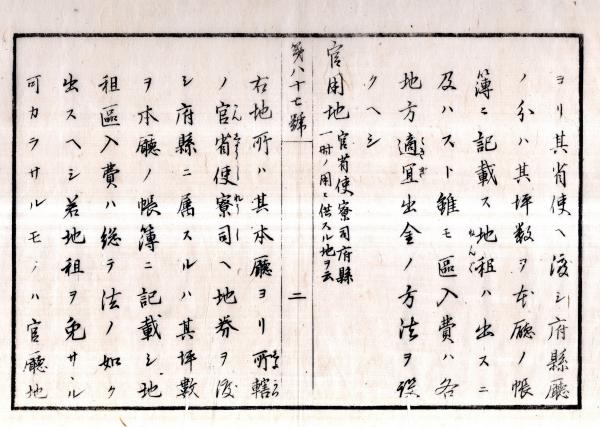 ヨリ其省使ヘ渡シ府縣廳
ノ分ハ其坪数ヲ本廳ノ帳
簿ニ記載ス地租ハ出スニ
及ハスト雖モ區入費ハ各
地方適宜出金ノ方法ヲ設
クヘシ
官用地 官省使寮司府縣
一时ノ用ニ供スル地ヲ云
第八十七號 二
右地所ハ其本廳ヨリ所轄
ノ官省使寮司ヘ地券ヲ渡
シ府縣ニ属スルハ其坪數
ヲ本廳ノ帳簿ニ記載シ地
租區入費ハ総テ法ノ如ク
出スヘシ若地租ヲ免サヽル
可カラサルモノハ官廳地